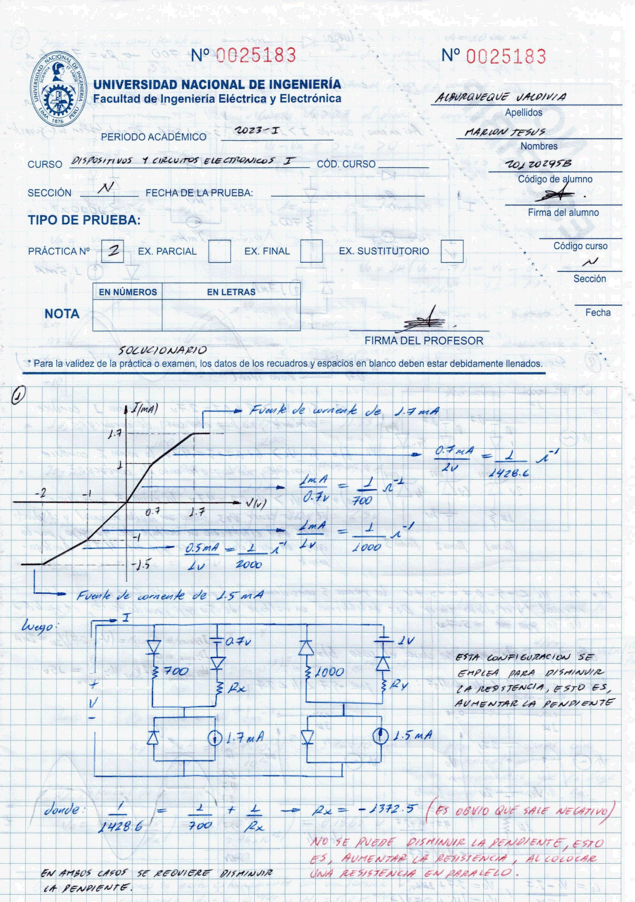 Nº 0025183
Nº 0025183
UNIVERSIDAD NACIONAL DE INGENIERÍA
Facultad de Ingeniería Eléctrica y Electrónica
UNIVERSIDAD NACIONAL DE INGENIERIA
1876 PERU
ALBURQUEQUE VALDIVIA
Apellidos
MARLON JESUS
Nombres
20120295B
Código de alumno
Firma del alumno
Código curso
N
Sección
Fecha
PERIODO ACADÉMICO 2023-I
CURSO DISPOSITIVOS Y CIRCUITOS ELECTRONICOS I CÓD. CURSO
SECCIÓN N FECHA DE LA PRUEBA:
TIPO DE PRUEBA:
PRÁCTICA Nº 2 EX. PARCIAL EX. FINAL EX. SUSTITUTORIO
NOTA
EN NÚMEROS EN LETRAS
FIRMA DEL PROFESOR
SOLUCIONARIO
* Para la validez de la práctica o examen, los datos de los recuadros y espacios en blanco deben estar debidamente llenados.
1
I(mA)
Fuente de corriente de 1.7 mA
1.7
0.7mA/1V = 1/1428.6 Ω⁻¹
1
1mA/0.7V = 1/700 Ω⁻¹
-2 -1 0.7 1.7 V(V)
1mA/1V = 1/1000 Ω⁻¹
-1
0.5mA/1V = 1/2000 Ω⁻¹
-1.5
Fuente de corriente de 1.5 mA
Luego:
I
0.7V 1V
700 Rx 1000 Ry
+
V
-
1.7mA 1.5mA
ESTA CONFIGURACION SE
EMPLEA PARA DISMINUIR
LA RESISTENCIA, ESTO ES,
AUMENTAR LA PENDIENTE
donde: 1/1428.6 = 1/700 + 1/Rx → Rx = -1372.5 (ES OBVIO QUE SALE NEGATIVO)
NO SE PUEDE DISMINUIR LA PENDIENTE, ESTO
ES, AUMENTAR LA RESISTENCIA, AL COLOCAR
UNA RESISTENCIA EN PARALELO.
EN AMBOS CASOS SE REQUIERE DISMINUIR
LA PENDIENTE.